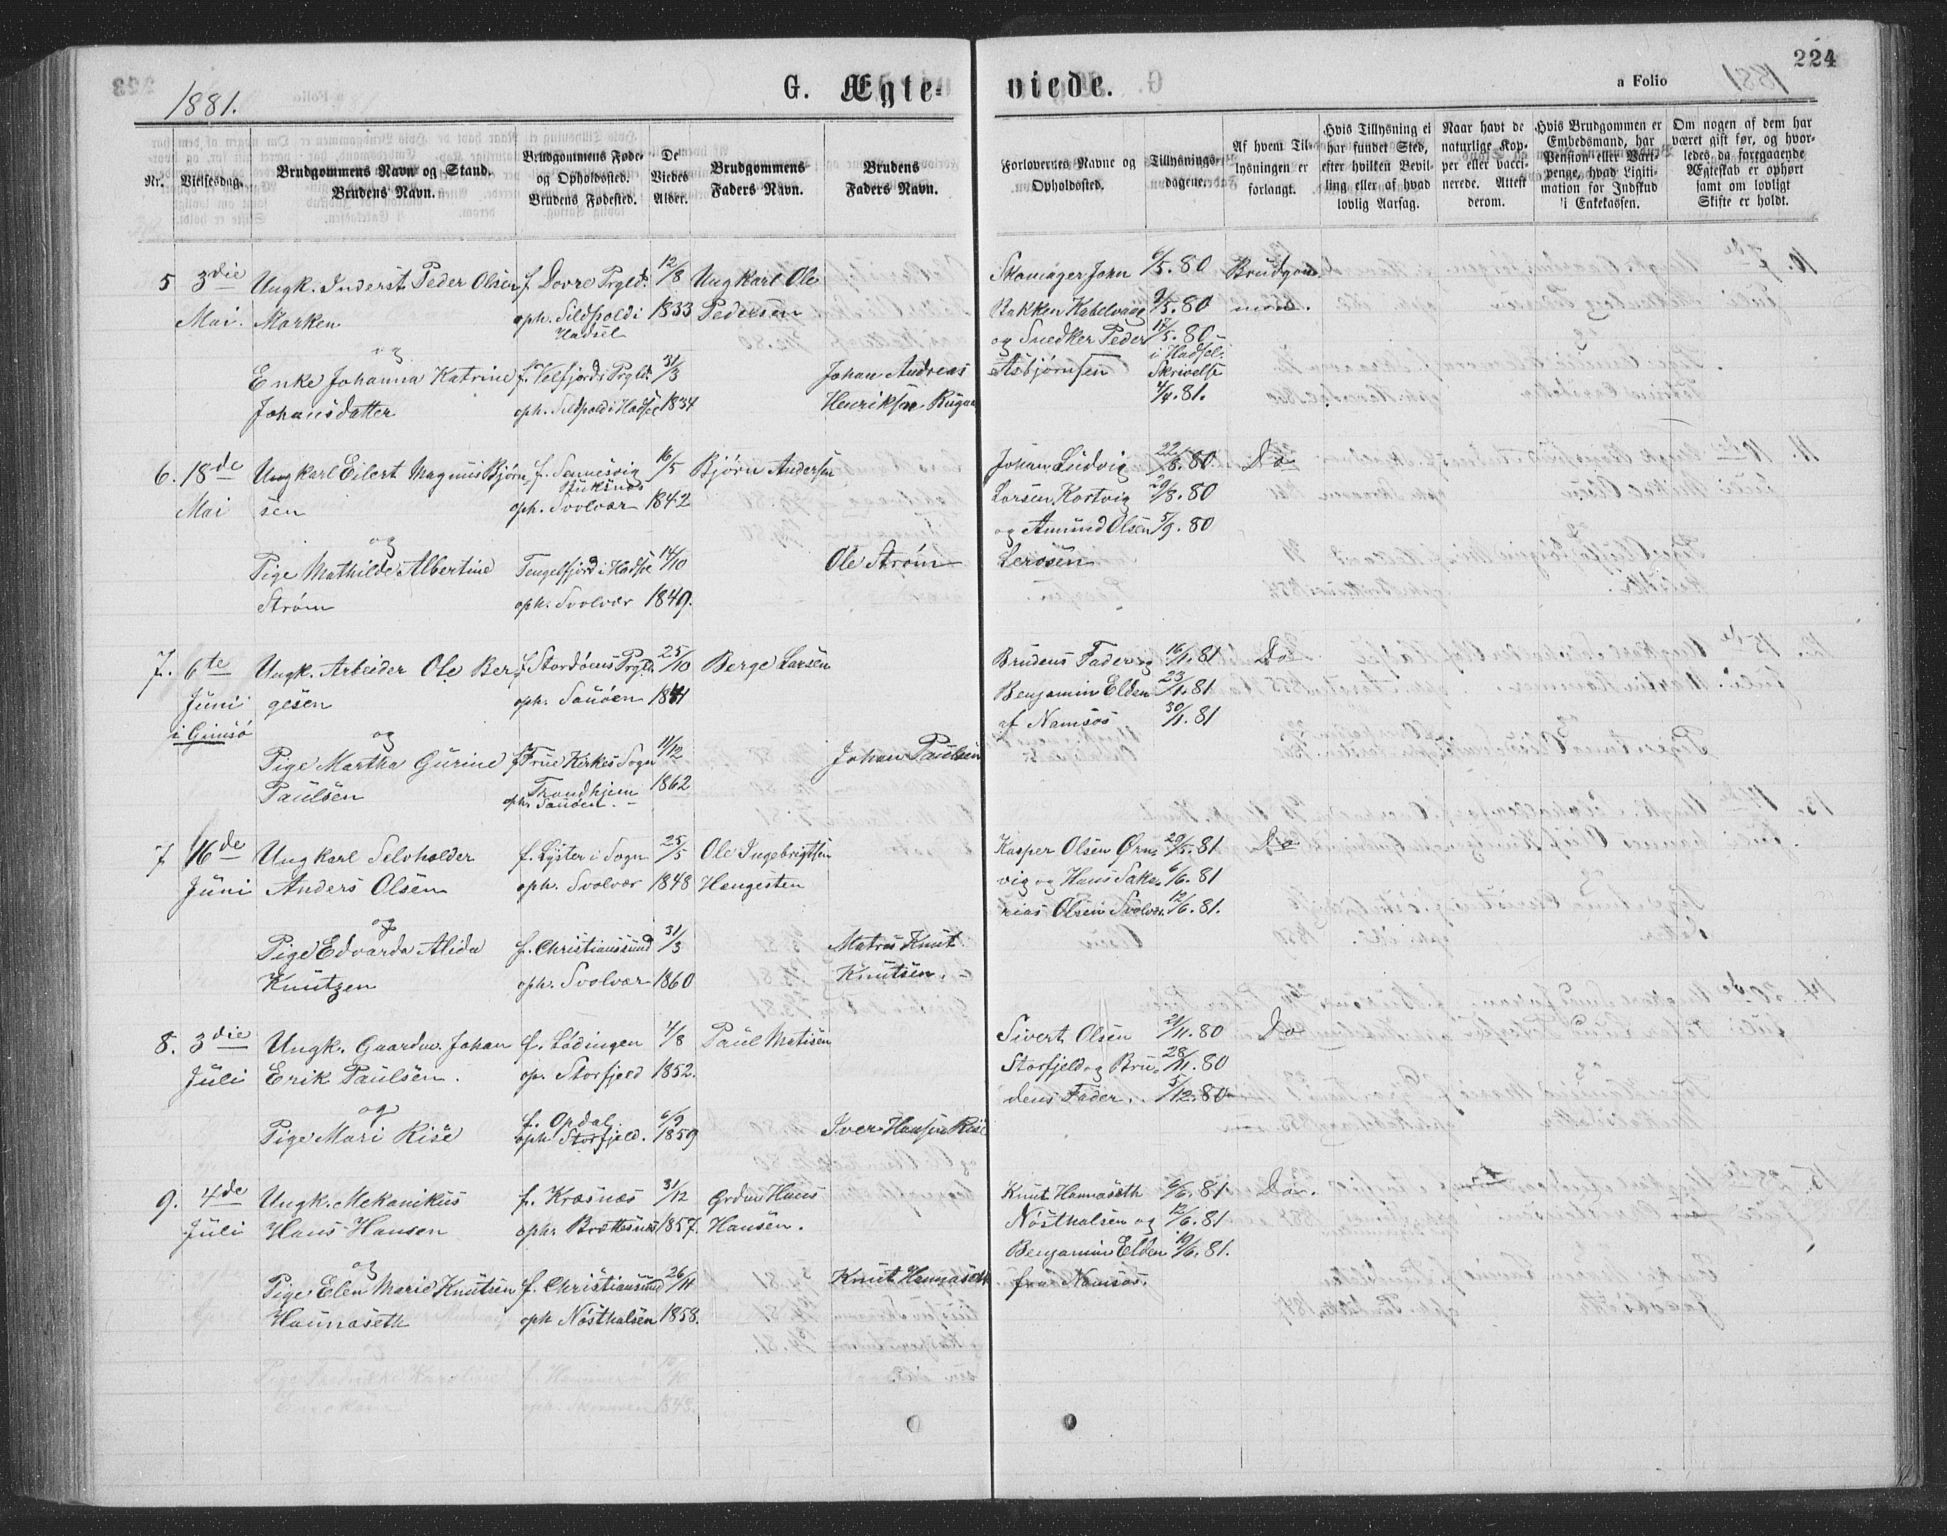 1881.
G. Ægte-
viede.
a Folio
224
Nr.
Vielsesdag.
Brudgommens Navn og Stand.
Brudens Navn.
Brudgommens Føde-
og Opholdssted.
Brudens Fødested.
De
Viedes
Alder.
Brudgommens
Faders Navn.
Brudens
Faders Navn.
Forlovernes Navne og
Opholdssted.
Tillysnings-
dagene.
Af hvem Til-
lysningen er
forlangt.
Hvis Tillysning ei
har fundet Sted,
efter hvilken Bevil-
ling eller af hvad
lovlig Aarsag.
Naar havt de
naturlige Kop-
per eller vacci-
nerede. Attest
derom.
Hvis Brudgommen er
Embedsmand, har
Pension eller Vart-
penge, hvad Ligiti-
mation for Indskud
i Enkekassen.
Om nogen af dem har
været gift før, og hvor-
ledes da foregaaende
Ægteskab er ophørt
samt om lovligt
Skifte er holdt.
5 3die Ungk. Inderst Peder Olsen f. Dovre Prgld. 12/8 Ungkarl Ole Skomager John 6/5.80 Brudgom-
Mai. Marken oph. Sildpold i 1833 Pedersen Bakken Kabelvaag 9/5.80 men.
Hadsel og Snedker Peder 17/5.80
og i Hadsel.
Enke Johanna Katrine f. Velfjord Prgld. 31/3 Johan Andreas Asbjørnsen Skrivelse
Johansdatter oph. Sildpold i Hadsel 1834 Henriksen 4/4.81.
6. 18de Ungkarl Eilert Magnus Bjørn- f. 16/5 Bjørn Andersen Johan Ludvig 22/8.80 Do
Mai sen oph. Svolvær 1842 Larsen 29/8.80
og og Amund Olsen 5/9.80
Pige Mathilde Albertine Tengelfjord i Hadsel 14/10 Ole Strøm Lerosen
Strøm oph. Svolvær 1849.
7. 6te Ungk. Arbeider Ole Ber- f. Stordøens Prgld. 25/10 Berge Larsen Brudens Fader og 16/1.81 Do
Juni gesen oph. 1841 Benjamin Elden 23/1.81
i Gimsø og af Namsos 30/1.81
Pige Martha Gurine f. Frue Kirkes Sogn 11/12 Johan Paulsen
Paulsen Trondhjem 1862
oph.
7 16de Ungkarl Selvholder f. Lyster i Sogn 25/5 Ole Ingebrigtsen Kasper Olsen Ørns- 29/5.81 Do
Juni Anders Olsen oph. Svolvær 1848 Haugesten vig og Hans Saka- 6/6.81
og rias Olsen Svolvær. 12/6.81.
Pige Edvarda Alida f. Christianssund 31/3 Matros Knut
Knutzen oph. Svolvær 1860 Knutsen.
8. 3die Ungk. Gaardm. Johan f. Lødingen 4/8 Paul Matisen Sivert Olsen 21/11.80 Do
Juli Erik Paulsen. op. Storfjeld 1852. Storfjeld og Bru- 28/11.80
og dens Fader. 5/12.80
Pige Mari Rise f. Opdal 6/9 Iver Hansen Rise
oph. Storfjeld. 1859
9. 4de Ungk. Mekanikus f. Kræsnæs 31/12 Hans Knut Hannaseth 6/6.81 Do.
Juli Hans Hansen oph. Brettesnæs 1857. Hansen. Nøstholsen og 12/6.81
og Benjamin Elden 19/6.81.
Pige Elen Marie Knutsen f. Christiansund 26/11 Knut Hannaseth fra Namsos.
Hannaseth oph. Nøstholsen 1858.